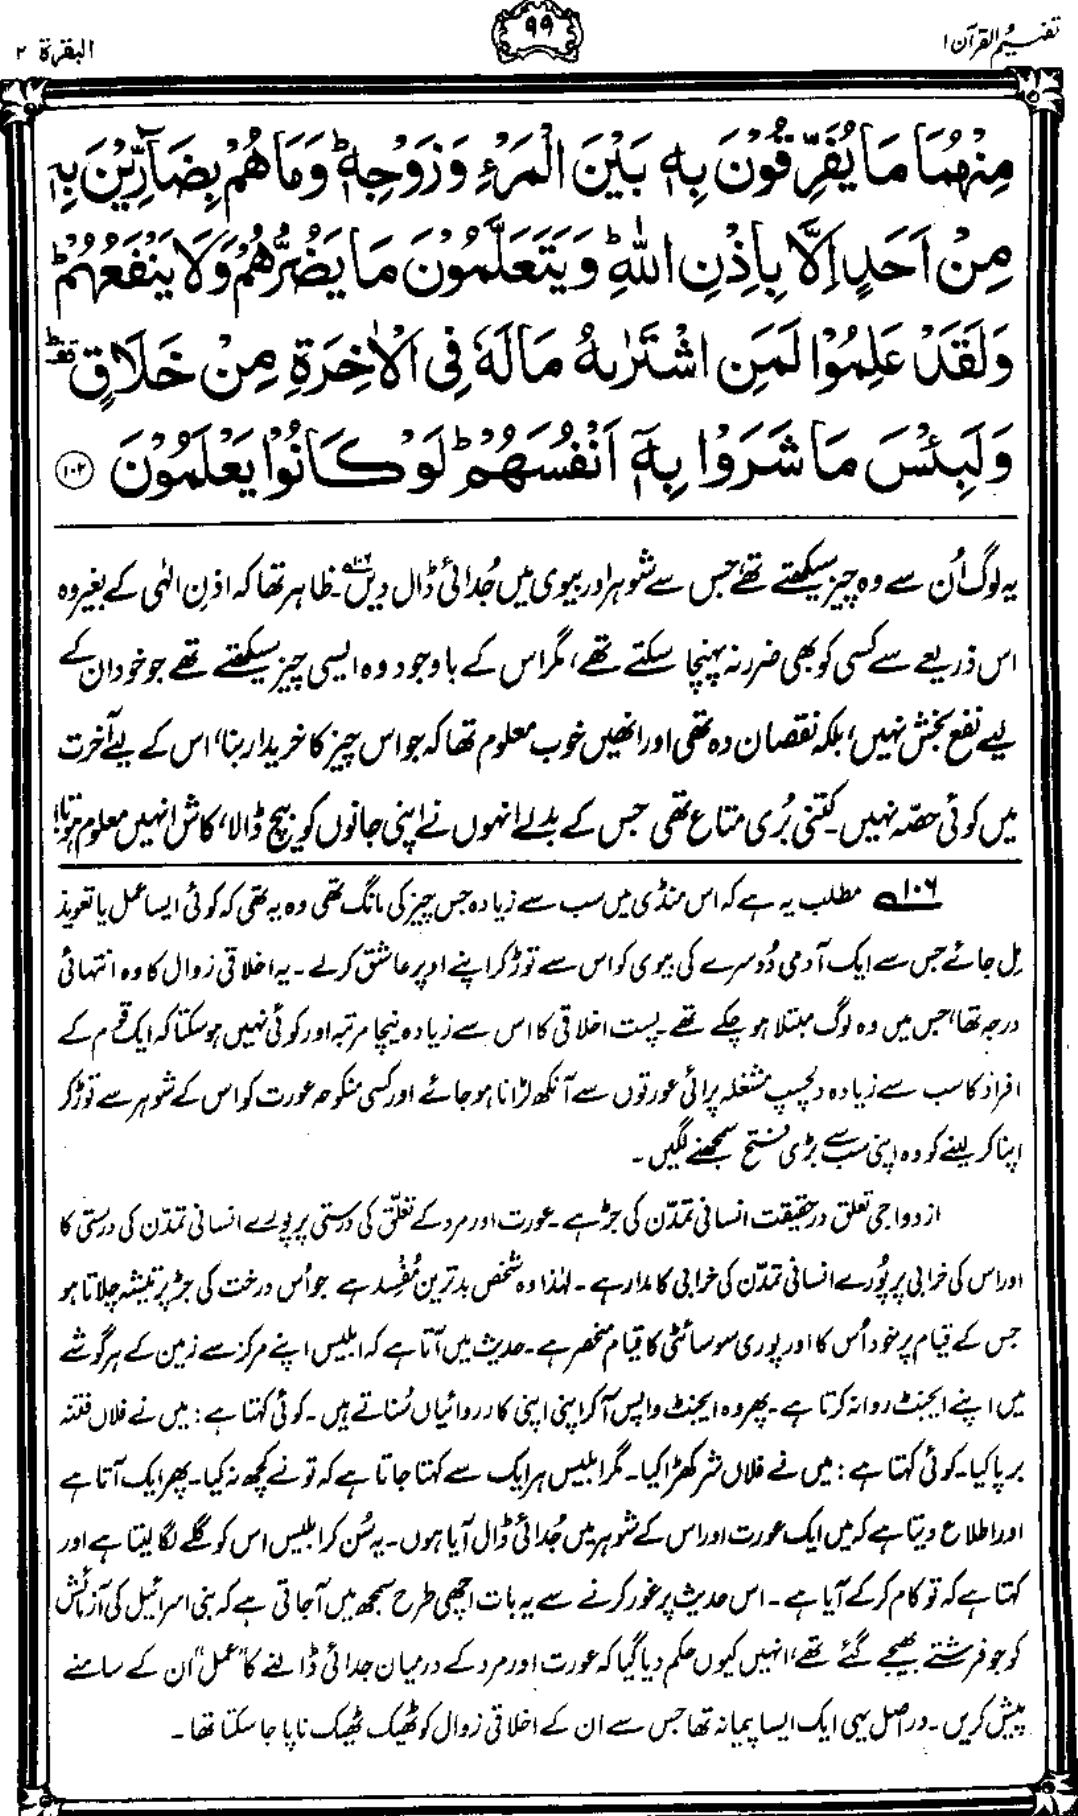 تفہیم القرآن ۱
۹۹
البقرۃ ۲
مِنْهُمَا مَا يُفَرِّقُوْنَ بِهٖ بَيْنَ الْمَرْءِ وَزَوْجِهٖ ؕ وَمَا هُمْ بِضَآرِّيْنَ بِهٖ
مِنْ اَحَدٍ اِلَّا بِاِذْنِ اللّٰهِ ؕ وَيَتَعَلَّمُوْنَ مَا يَضُرُّهُمْ وَلَا يَنْفَعُهُمْ ؕ
وَلَقَدْ عَلِمُوْا لَمَنِ اشْتَرٰىهُ مَا لَهٗ فِى الْاٰخِرَةِ مِنْ خَلَاقٍ ؕ
وَلَبِئْسَ مَا شَرَوْا بِهٖٓ اَنْفُسَهُمْ ؕ لَوْ كَانُوْا يَعْلَمُوْنَ ﴿۱۰۲﴾
یہ لوگ اُن سے وہ چیز سیکھتے تھے، جس سے شوہر اور بیوی میں جُدائی ڈال دیں۱۰۶۔ ظاہر تھا کہ اذنِ الٰہی کے بغیر وہ
اس ذریعے سے کسی کو بھی ضرر نہ پہنچا سکتے تھے، مگر اس کے باوجود وہ ایسی چیز سیکھتے تھے جو خود ان کے
لیے نفع بخش نہیں، بلکہ نقصان دہ تھی اور انھیں خوب معلوم تھا کہ جو اس چیز کا خریدار بنا، اس کے لیے آخرت
میں کوئی حصّہ نہیں۔ کتنی بُری متاع تھی جس کے بدلے انہوں نے اپنی جانوں کو بیچ ڈالا، کاش انہیں معلوم ہوتا!
۱۰۶ مطلب یہ ہے کہ اس منڈی میں سب سے زیادہ جس چیز کی مانگ تھی وہ یہ تھی کہ کوئی ایسا عمل یا تعویذ
مِل جائے جس سے ایک آدمی دُوسرے کی بیوی کو اس سے توڑ کر اپنے اوپر عاشق کر لے۔ یہ اخلاقی زوال کا وہ انتہائی
درجہ تھا، جس میں وہ لوگ مبتلا ہو چکے تھے۔ پست اخلاقی کا اس سے زیادہ نیچا مرتبہ اور کوئی نہیں ہو سکتا کہ ایک قوم کے
افراد کا سب سے زیادہ دلچسپ مشغلہ پرائی عورتوں سے آنکھ لڑانا ہو جائے اور کسی منکوحہ عورت کو اس کے شوہر سے توڑ کر
اپنا کر لینے کو وہ اپنی سب سے بڑی فتح سمجھنے لگیں۔
ازدواجی تعلق درحقیقت انسانی تمدّن کی جڑ ہے۔ عورت اور مرد کے تعلّق کی درستی پر پورے انسانی تمدّن کی درستی کا
اور اس کی خرابی پر پُورے انسانی تمدّن کی خرابی کا مدار ہے۔ لہٰذا وہ شخص بدترین مُفْسِد ہے جو اُس درخت کی جڑ پر تیشہ چلاتا ہو
جس کے قیام پر خود اُس کا اور پوری سوسائٹی کا قیام منحصر ہے۔ حدیث میں آتا ہے کہ ابلیس اپنے مرکز سے زمین کے ہر گوشے
میں اپنے ایجنٹ روانہ کرتا ہے۔ پھر وہ ایجنٹ واپس آکر اپنی اپنی کارروائیاں سُناتے ہیں۔ کوئی کہتا ہے: میں نے فلاں فتنہ
برپا کیا۔ کوئی کہتا ہے: میں نے فلاں شر کھڑا کیا۔ مگر ابلیس ہر ایک سے کہتا جاتا ہے کہ تو نے کچھ نہ کیا۔ پھر ایک آتا ہے
اور اطلاع دیتا ہے کہ میں ایک عورت اور اس کے شوہر میں جُدائی ڈال آیا ہوں۔ یہ سُن کر ابلیس اس کو گلے لگا لیتا ہے اور
کہتا ہے کہ تو کام کر کے آیا ہے۔ اس حدیث پر غور کرنے سے یہ بات اچھی طرح سمجھ میں آجاتی ہے کہ بنی اسرائیل کی آزمائش
کو جو فرشتے بھیجے گئے تھے، انہیں کیوں حکم دیا گیا کہ عورت اور مرد کے درمیان جدائی ڈالنے کا ”عمل“ ان کے سامنے
پیش کریں۔ دراصل یہی ایک ایسا پیمانہ تھا جس سے ان کے اخلاقی زوال کو ٹھیک ٹھیک ناپا جا سکتا تھا۔